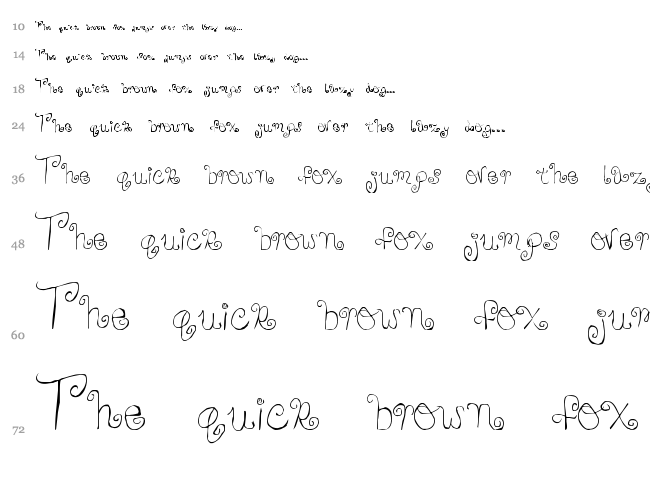 10 The quick brown fox jumps over the lazy dog...
14 The quick brown fox jumps over the lazy dog...
18 The quick brown fox jumps over the lazy dog...
24 The quick brown fox jumps over the lazy dog...
36 The quick brown fox jumps over the laz
48 The quick brown fox jumps over
60 The quick brown fox jum
72 The quick brown fox